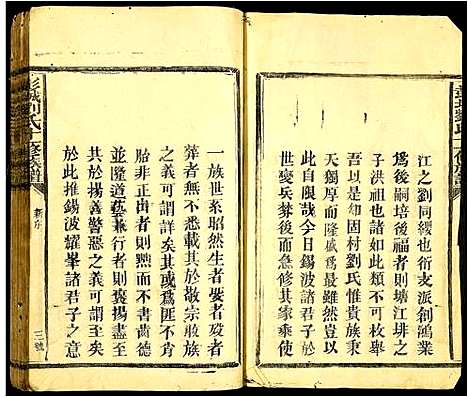 江之劉同纓也衍支派創鴻業
爲後嗣培後福者則塘江排之
子洪祖也此尤不可枚舉
吾以是知固村劉氏惟貴族秉
天獨厚而隆盛爲最雖然豈以
此自限哉今日錫波諸君子於
各變兵孽後而急修其家乘使
一族世系昭然生者娶者歿者
葬者無不悉載其於敬宗睦族
之義可謂詳矣其或爲匪不明
胎非正出者則黜而不書齒德
並隆道藝兼行者則褒揚盡致
其於揚善警惡之義可謂至矣
於此推錫波耀峯諸君子之意
彭城劉氏十修族譜
新序
三號